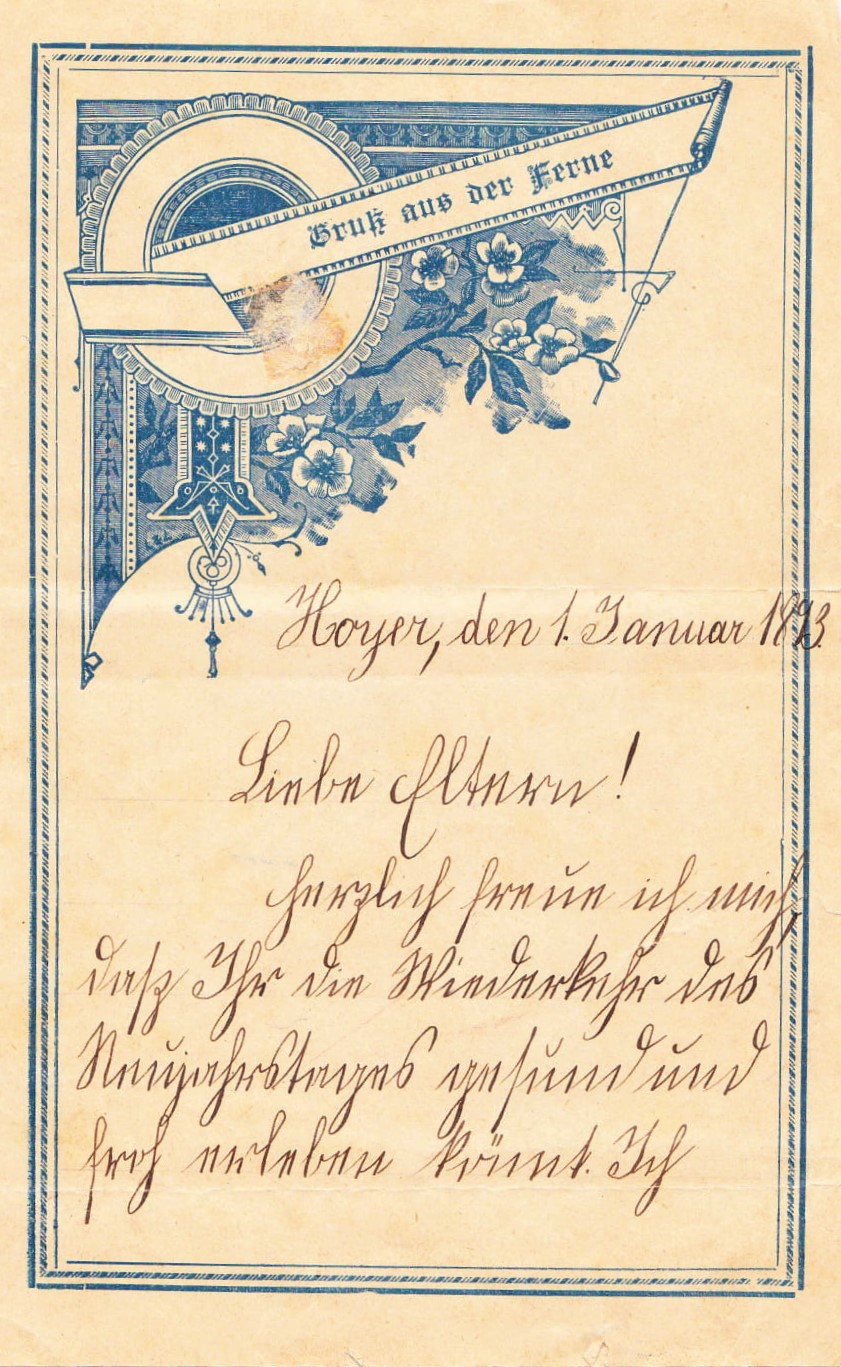 Gruß aus der Ferne
Hoyer, den 1. Januar 1893.
Liebe Eltern!
Herzlich freue ich mich,
daß Ihr die Wiederkehr des
Neujahrstages gesund und
froh erleben könnt. Ich